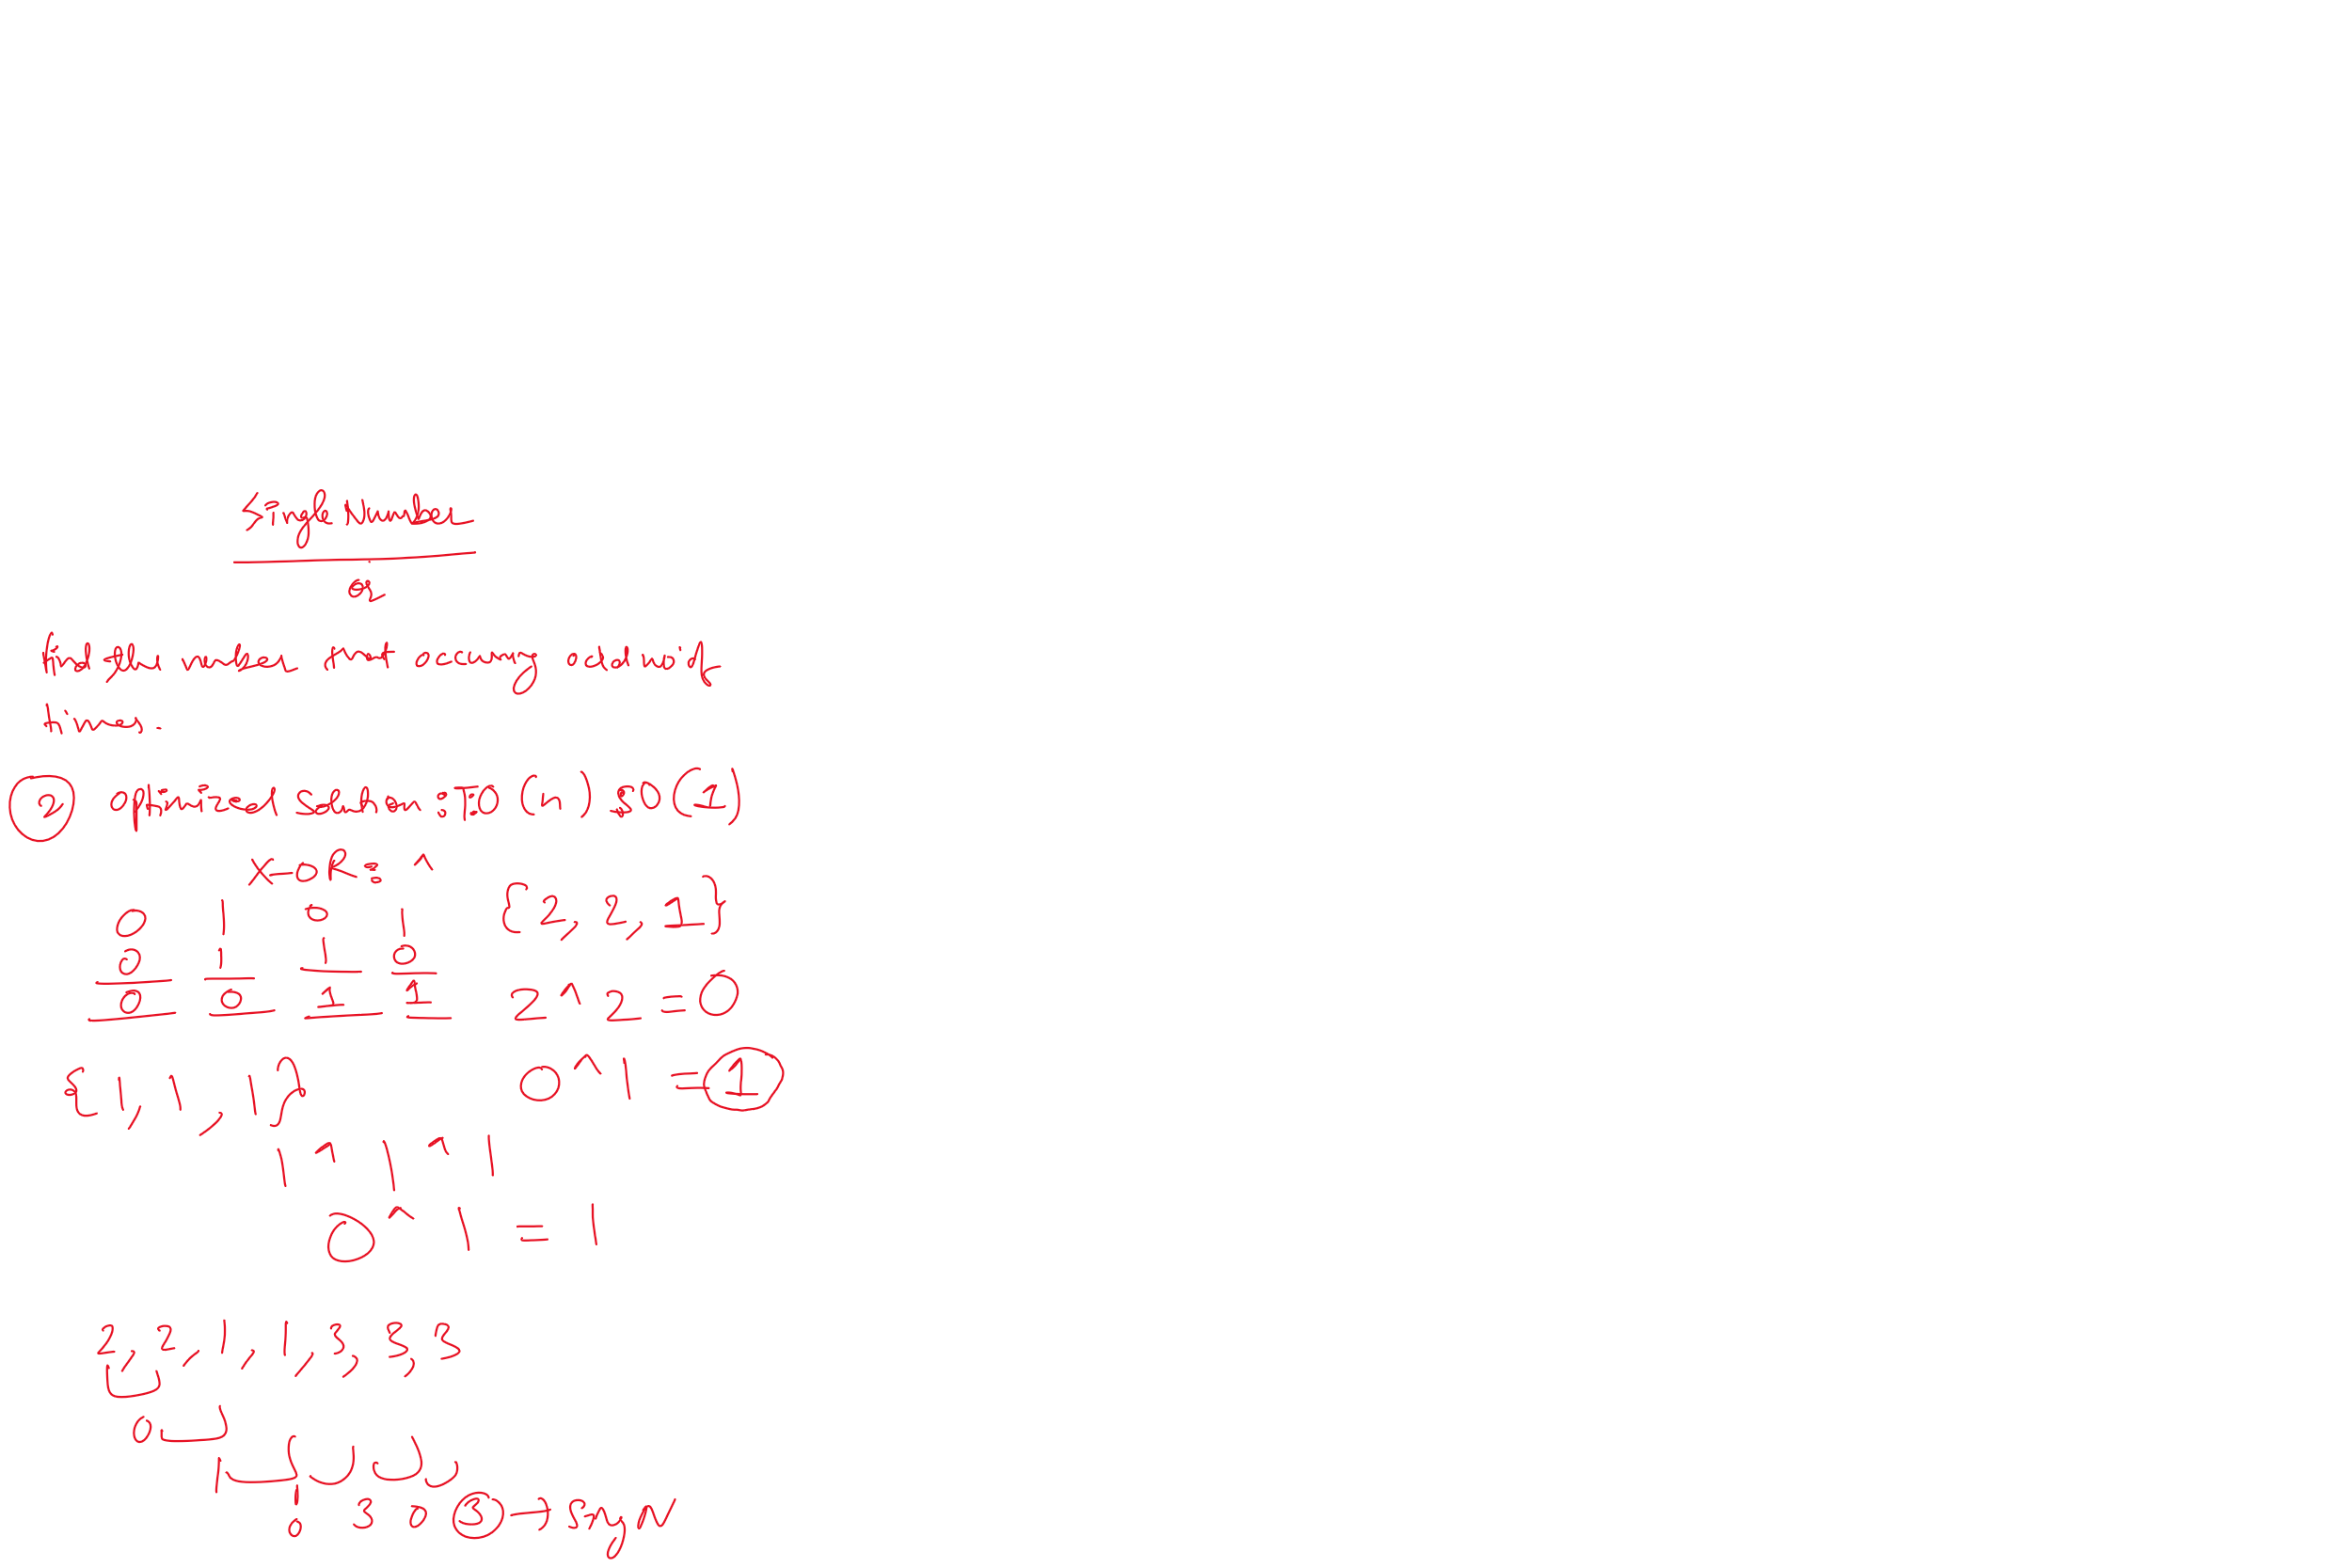 Single Number
or
find the number that occurring odd no. of
times.
② optimized solution: TO(n) SO(1)
X-OR = ^
0 1 0 1 {2, 2, 1}
0 1 1 0
0 0 1 1 2 ^ 2 = 0
{1, 1, 1} 0 ^ 1 = 1
1 ^ 1 ^ 1
0 ^ 1 = 1
2, 2, 1, 1, 3, 3, 3
0
1
0 3 0 3 → Sing N